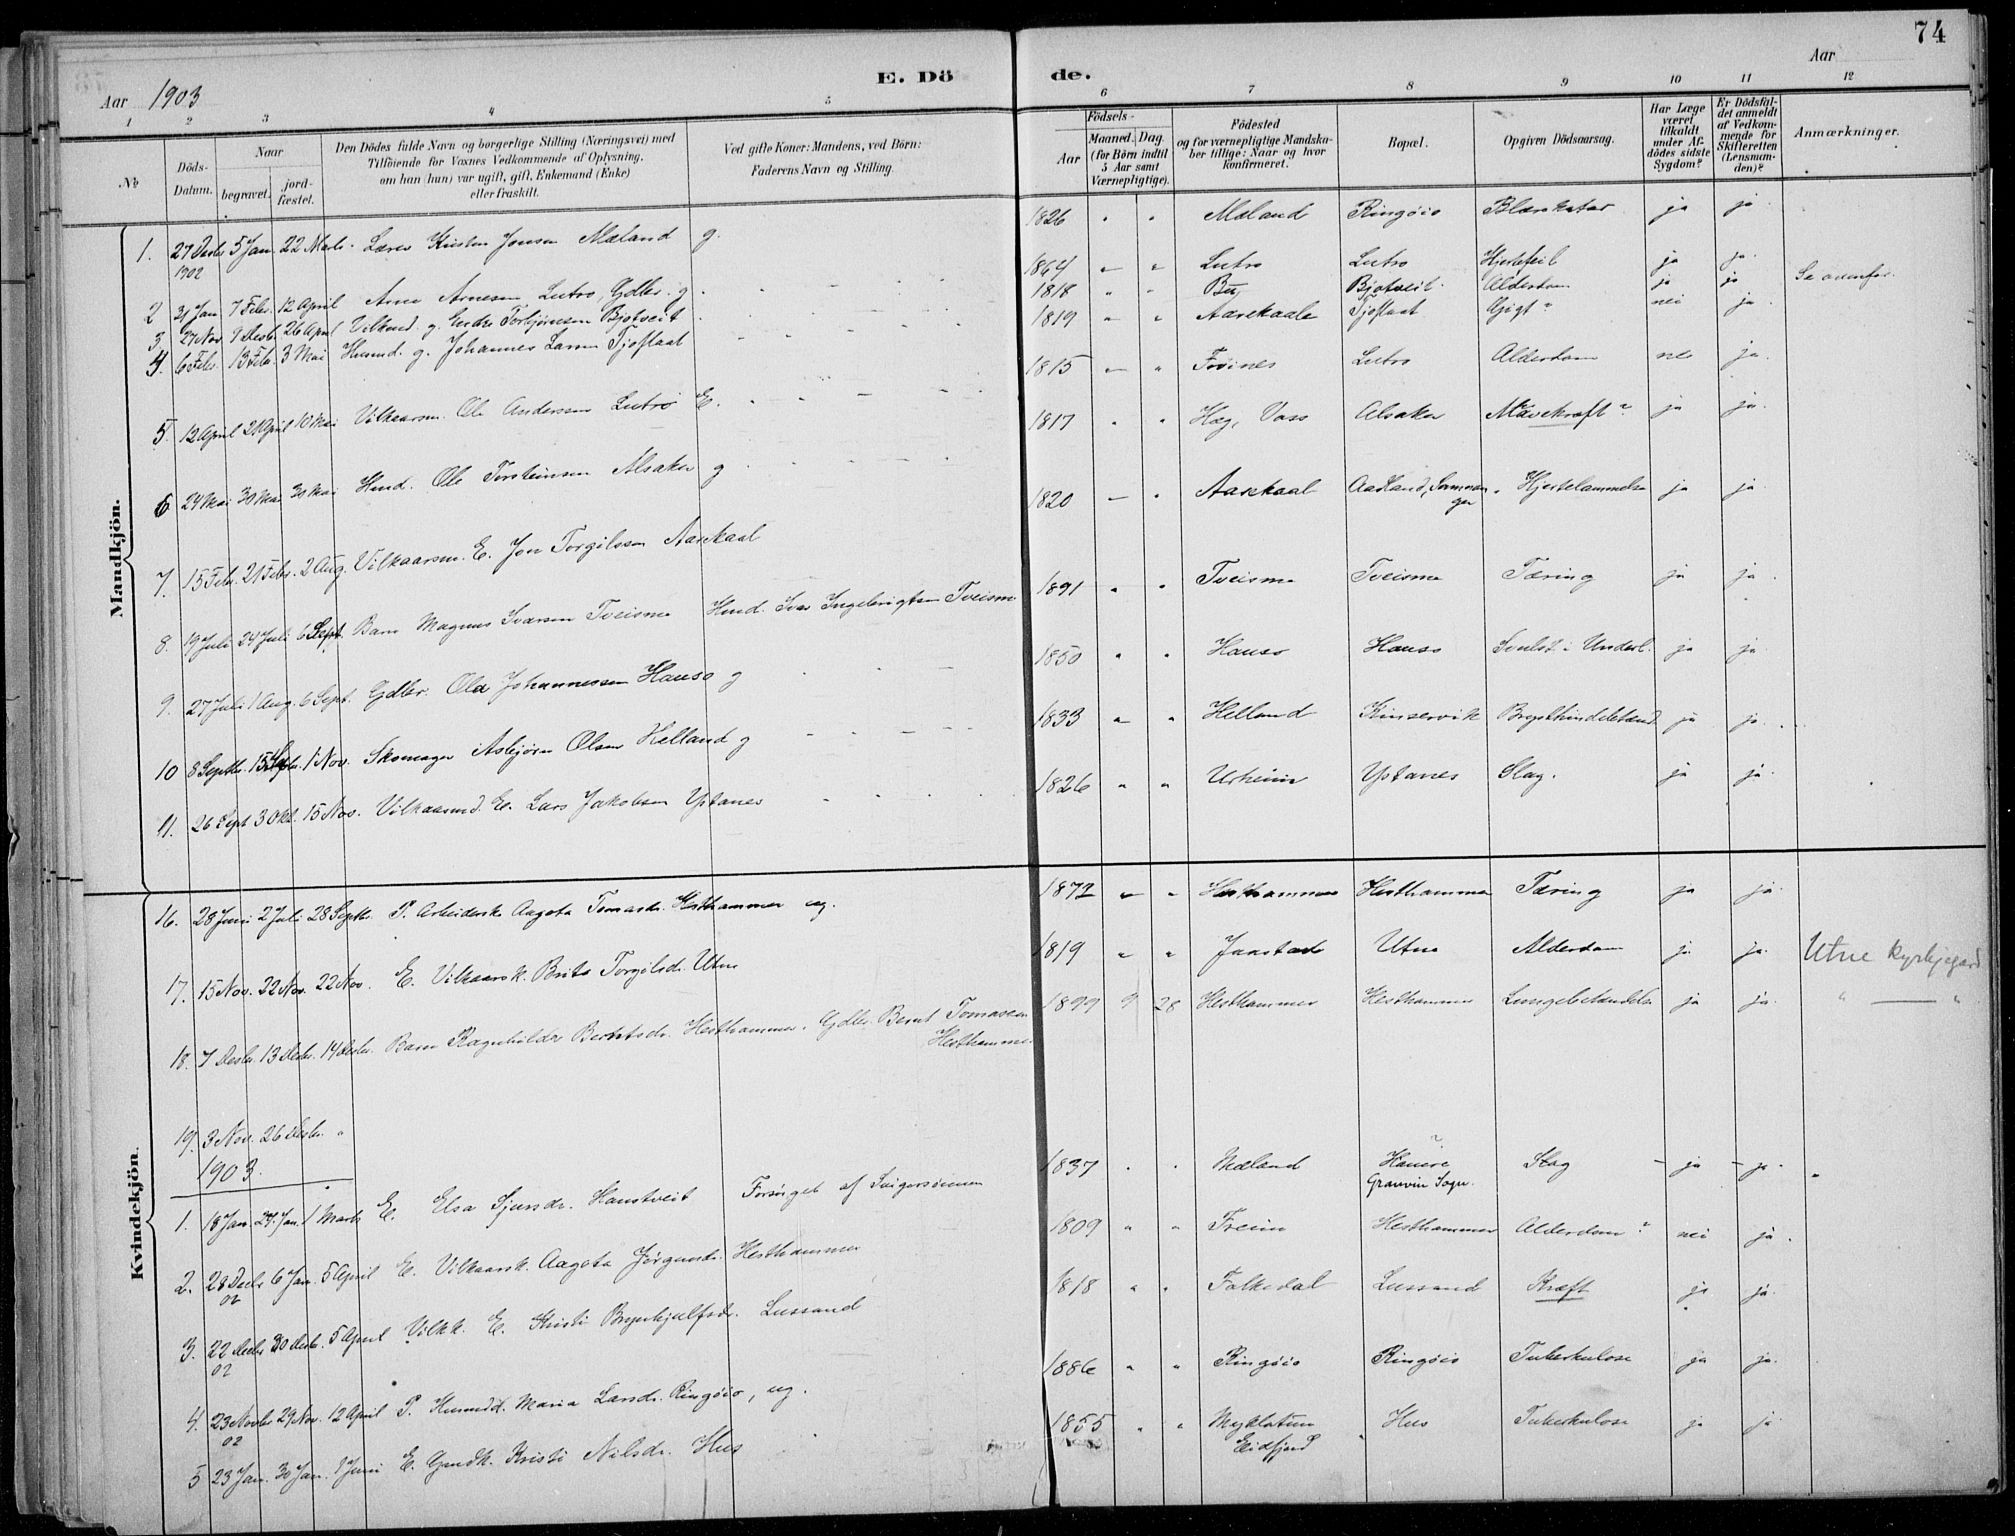 74
E. Dö de.
Aar 1903
Aar
1 2 3 4 5 6 7 8 9 10 11 12
№
Döds-Datum.
Naar
begravet.
jord-fæstet.
Den Dödes fulde Navn og borgerlige Stilling (Næringsvei) med
Tilföiende for Voxnes Vedkommende af Oplysning,
om han (hun) var ugift, gift, Enkemand (Enke)
eller fraskilt.
Ved gifte Koner: Mandens, ved Börn:
Faderens Navn og Stilling.
Födsels-
Aar
Maaned. Dag.
(for Börn indtil
5 Aar samt
Værnepligtige).
Födested
og for værnepligtige Mandska-
ber tillige: Naar og hvor
konfirmeret.
Bopæl.
Opgiven Dödsaarsag.
Har Læge
været
tilkaldt
under Af-
dödes sidste
Sygdom?
Er Dödsfal-
det anmeldt
af Vedkom-
mende for
Skifteretten
(Lensman-
den)?
Anmærkninger.
Mandkjön.
1. 27 Desbr 1902 5 Jan. 22 Marts. Lærer Kristen Jonsen Mæland g. 1826 " " Mæland Ringöio Blærekatar ja ja
2 31 Jan. 7 Febr. 12 April Arne Arnesen Lutro, Gdbr. g. 1864 " " Lutro Lutro Hjertefeil ja ja.
3. 27 Nov. 1 Desbr. 26 April Vilkmd. g. Endre Torbjörnsen Bjotveit 1818 " " Bu Bjotveit Alderdom ja ja Se ovenfor.
4. 6 Febr. 13 Febr. 3 Mai Husmd. g. Johannes Larsen Tjoflaat 1819 " " Aarekaale Tjoflaat Gigt? nei ja.
5. 12 April 21 April 10 Mai Vilkaarsm. Ole Andersen Lutro E. 1815 " " Froines Lutro Alderdom nei ja.
6 24 Mai 30 Mai 30 Mai Husd. Ole Torsteinsen Alsaker g 1817 " " Hæg, Voss Alsaker Mavekræft? ja ja.
7. 15 Febr. 21 Febr. 2 Aug. Vilkaarsm. E. Jon Torgilssen Aarekaal 1820 " " Aarekaal Aadland, Samnanger Hjertelammelse ja ja.
8. 19 Juli 24 Juli 6 Sept. Barn Magnus Svarsen Tveisme Husd. Svar Ingebrigtsen Tveisme 1891 " " Tveisme Tveisme Tæring ja ja.
9. 27 Juli 1 Aug. 6 Sept. Gdbr. Ole Johannessen Hauso g 1850 " " Hauso Hauso Svulst i Underl. ja ja
10 8 Septbr. 15 Septbr. 1 Nov. Skomager Asbjörn Olsen Helland g 1833 " " Helland Kinservik Brysthindebetænd. ja ja.
11. 26 Sept 3 Okt. 15 Nov. Vilkaarsmd. E. Lars Jakobsen Ystanes 1826 " " Urheim Ystanes Slag. ja ja.
Kvindekjön.
16. 28 Juni 2 Juli 28 Septbr. P. Arbeiderske Aagota Tomasdr. Hesthammer ug. 1872 " " Hesthammer Hesthammer Tæring ja ja.
17. 15 Nov. 22 Nov. 22 Nov. E. Vilkaarsk. Brita Torgilsdr. Utne 1819 " " Jaastad Utne Alderdom ja ja. Utne kyrkjegard
18. 7 Desbr. 13 Desbr. 14 Desbr. Barn Ragnhilda Berntsdr. Hesthammer. Gdbr. Bernt Tomassen Hesthammer 1899 9 28 Hesthammer Hesthammer Lungebetændelse ja ja. " — "
19. 3 Nov. 26 Desbr. "
1903.
1. 18 Jan. 24 Jan. 1 Marts E. Elsa Sjursdr. Hanstveit Forsörget af Svigersönnen 1837 " " Mæland Hauere? Granvin Sogn. Slag – ja – ja.
2. 28 Desbr 02 6 Jan. 5 April E. Vilkaarsk. Aagota Jörgensdr. Hesthammer 1809 " " Treim Hesthammer Alderdom? nei ja.
3. 22 Desbr 02 30 Desbr. 5 April Vilkk. E. Kristi Brynhjulfsdr. Lussand 1818 " " Folkedal Lussand Kræft ja ja.
4. 23 Novbr 02 29 Nov. 12 April P. Husmdd. Maria Larsdr. Ringöio, ug. 1886 " " Ringöio Ringöio Tuberkulose ja ja.
5 23 Jan. 30 Jan. 1 Juni E. Gmdk. Kristi Nilsdr. Hus 1855 " " Myklatun Eidfjord Hus Tuberkulose ja ja